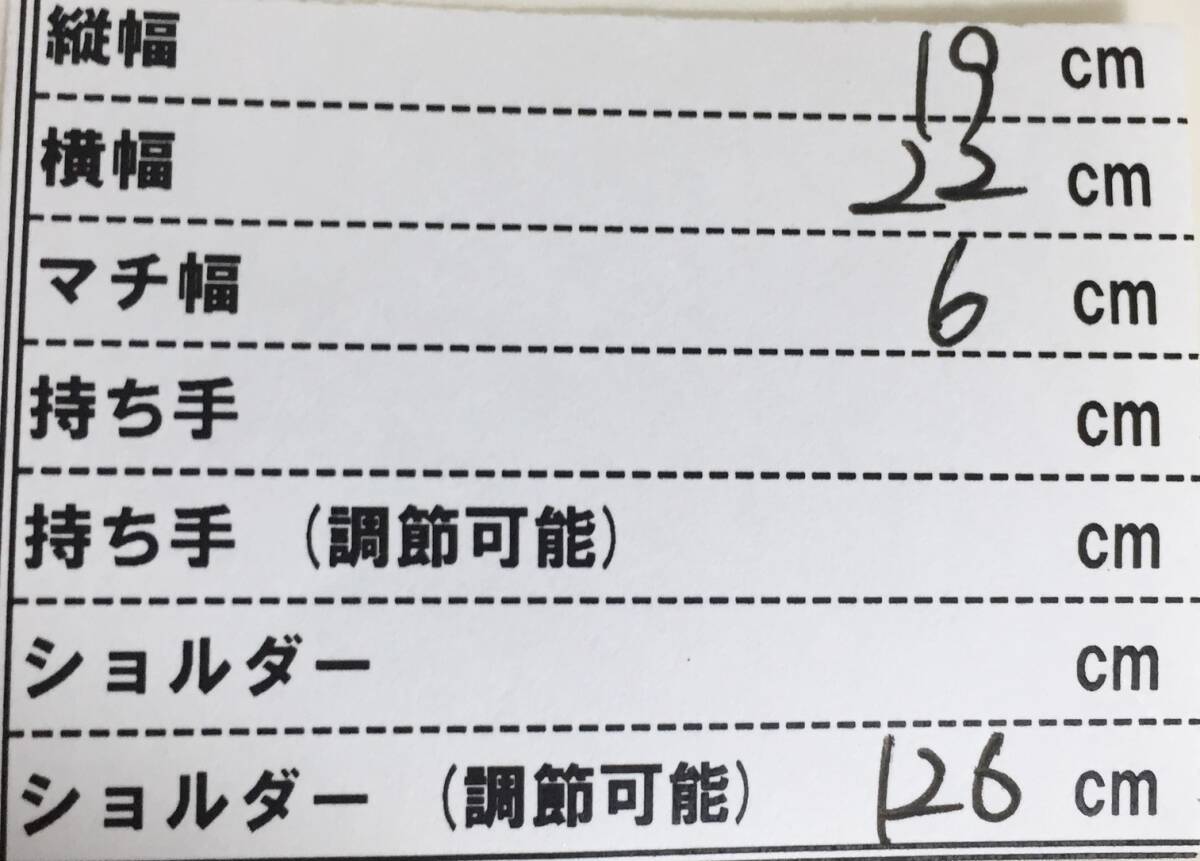 縦幅 19 cm
横幅 22 cm
マチ幅 6 cm
持ち手 cm
持ち手 (調節可能) cm
ショルダー cm
ショルダー (調節可能) 126 cm